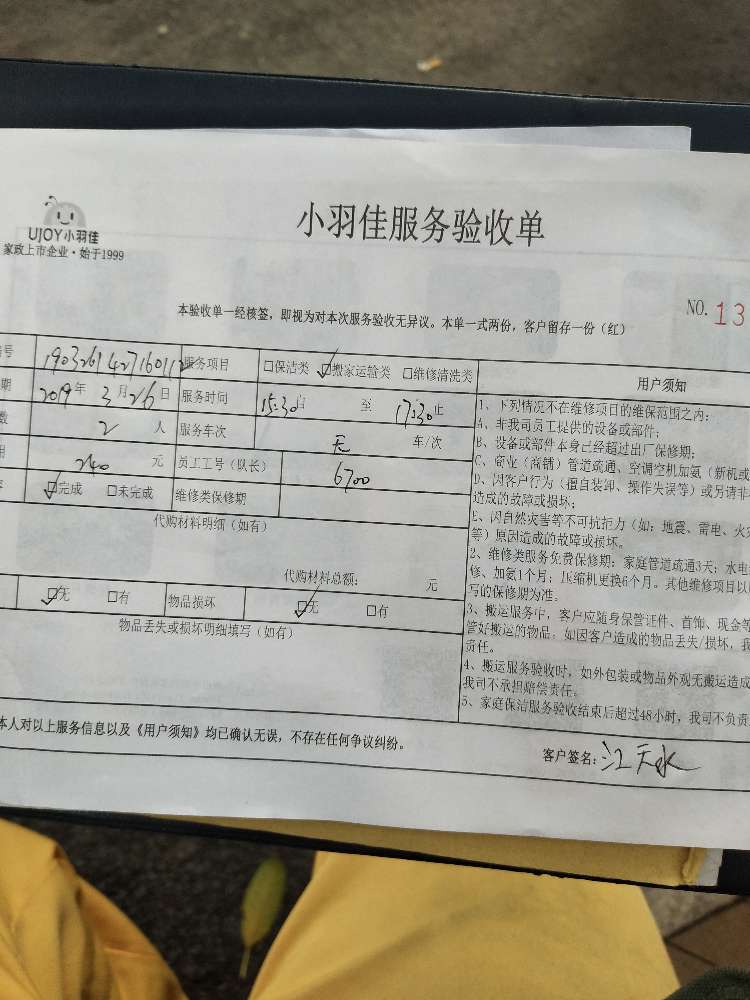 UJOY小羽佳
家政上市企业·始于1999
小羽佳服务验收单
NO. 13
本验收单一经核签，即视为对本次服务验收无异议。本单一式两份，客户留存一份（红）
号 190326142716011 服务项目 □保洁类 ☑搬家运输类 □维修清洗类
期 2019年3月26日 服务时间 15:30 至 17:30止
数 2 人 服务车次 无 车/次
240 元 员工工号（队长） 6700
☑完成 □未完成 维修类保修期
代购材料明细（如有）
代购材料总额： 元
☑无 □有 物品损坏 ☑无 □有
物品丢失或损坏明细填写（如有）
用户须知
1、下列情况不在维修项目的维保范围之内：
A、非我司员工提供的设备或部件；
B、设备或部件本身已经超过出厂保修期；
C、商业（商铺）管道疏通、空调空机加氨（新机或
D、因客户行为（擅自装卸、操作失误等）或另请非
造成的故障或损坏；
E、因自然灾害等不可抗拒力（如：地震、雷电、火
等）原因造成的故障或损坏。
2、维修类服务免费保修期：家庭管道疏通3天；水电
修、加氨1个月；压缩机更换6个月。其他维修项目以
写的保修期为准。
3、搬运服务中，客户应随身保管证件、首饰、现金等
管好搬运的物品，如因客户造成的物品丢失/损坏，我
责任。
4、搬运服务验收时，如外包装或物品外观无搬运造成
我司不承担赔偿责任。
5、家庭保洁服务验收结束后超过48小时，我司不负责
本人对以上服务信息以及《用户须知》均已确认无误，不存在任何争议纠纷。
客户签名：江天水